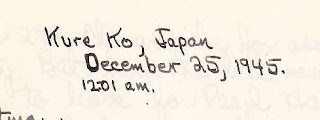 Kure Ko, Japan
December 25, 1945.
12:01 am.